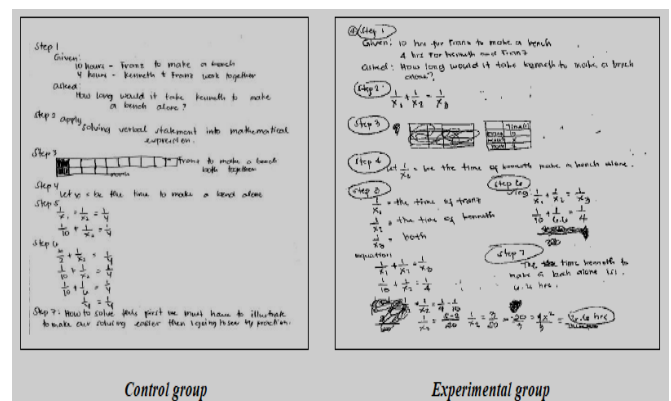 Step 1
Given:
10 hours - Franz to make a bench
4 hours - Kenneth & Franz work together
asked:
How long would it take kenneth to make
a bench alone?
Step 2 apply
solving verbal statement into mathematical
expression.
Step 3
Franz to make a bench
both together
Step 4
Let x₂ = be the time to make a bench alone
Step 5
1/x₁ + 1/x₂ = 1/4
1/10 + 1/x₂ = 1/4
Step 6
1/10 + 1/x₂ = 1/4
1/4 = 1/4
Step 7: How to solve this first we must have to illustrate
to make our solving easier then
by fraction.
Control group
④ Step 1
Given: 10 hrs for Franz to make a bench
4 hrs for kenneth and Franz
asked: How long would it take kenneth to make a bench
alone?
Step 2
1/x₁ + 1/x₂ = 1/x₃
Step 3
Step 4 let 1/x₂ = be the time of kenneth make a bench alone.
Step 5
1/x₁ = the time of franz
1/x₂ = the time of kenneth
1/x₃ = both
equation
1/x₁ + 1/x₂ = 1/x₃
1/10 + 1/x₂ = 1/4
1/x₂ = 1/4 - 1/10
1/x₂ = 5-2/20 1/x₂ = 3/20
6.6 hrs
Step 6
Using 1/x₁ + 1/x₂ = 1/x₃
1/10 + 1/6.6 = 1/4
Step 7
The time kenneth to
make a bench alone is
6.6 hrs.
Experimental group